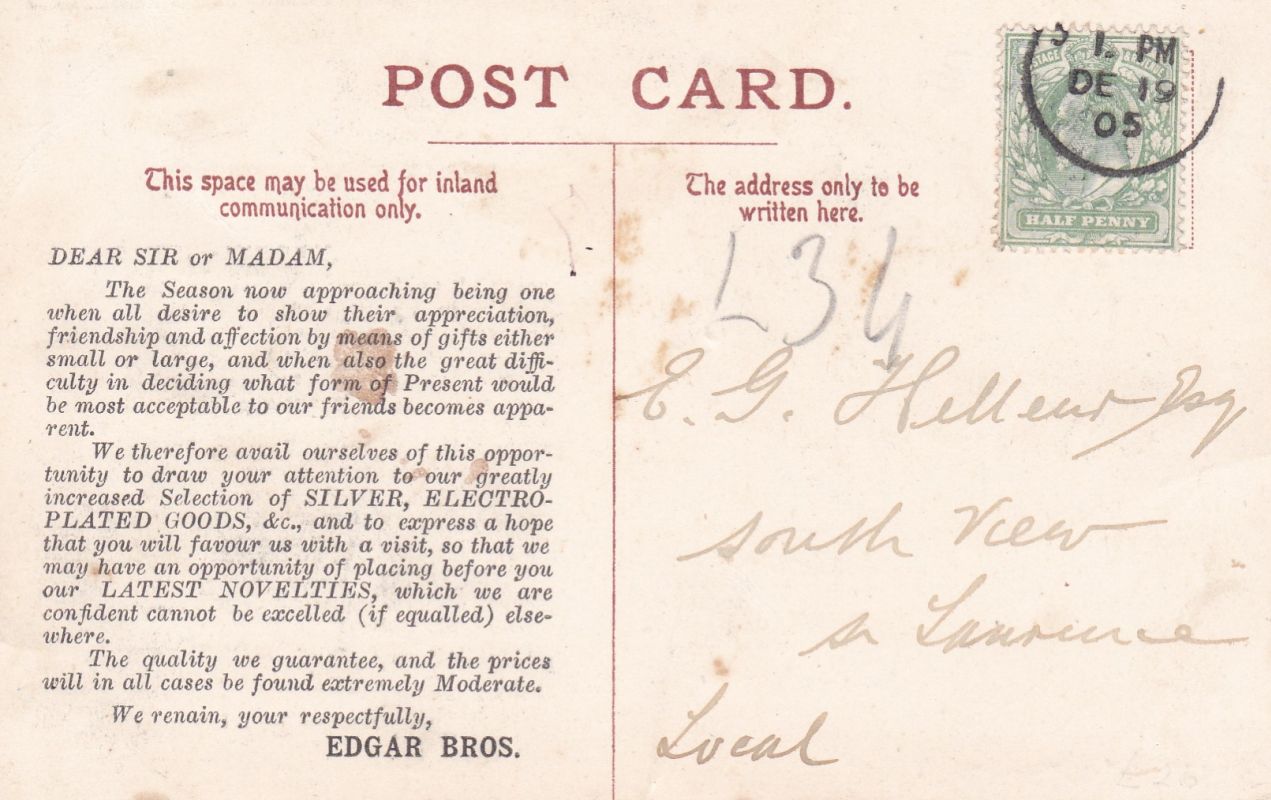 POST CARD.
This space may be used for inland
communication only.
DEAR SIR or MADAM,
The Season now approaching being one
when all desire to show their appreciation,
friendship and affection by means of gifts either
small or large, and when also the great diffi-
culty in deciding what form of Present would
be most acceptable to our friends becomes appa-
rent.
We therefore avail ourselves of this oppor-
tunity to draw your attention to our greatly
increased Selection of SILVER, ELECTRO-
PLATED GOODS, &c., and to express a hope
that you will favour us with a visit, so that we
may have an opportunity of placing before you
our LATEST NOVELTIES, which we are
confident cannot be excelled (if equalled) else-
where.
The quality we guarantee, and the prices
will in all cases be found extremely Moderate.
We renain, your respectfully,
EDGAR BROS.
The address only to be
written here.
1. PM
DE 19
05
HALF PENNY
L34
E. G. Esq
South View
St Laurence
Local